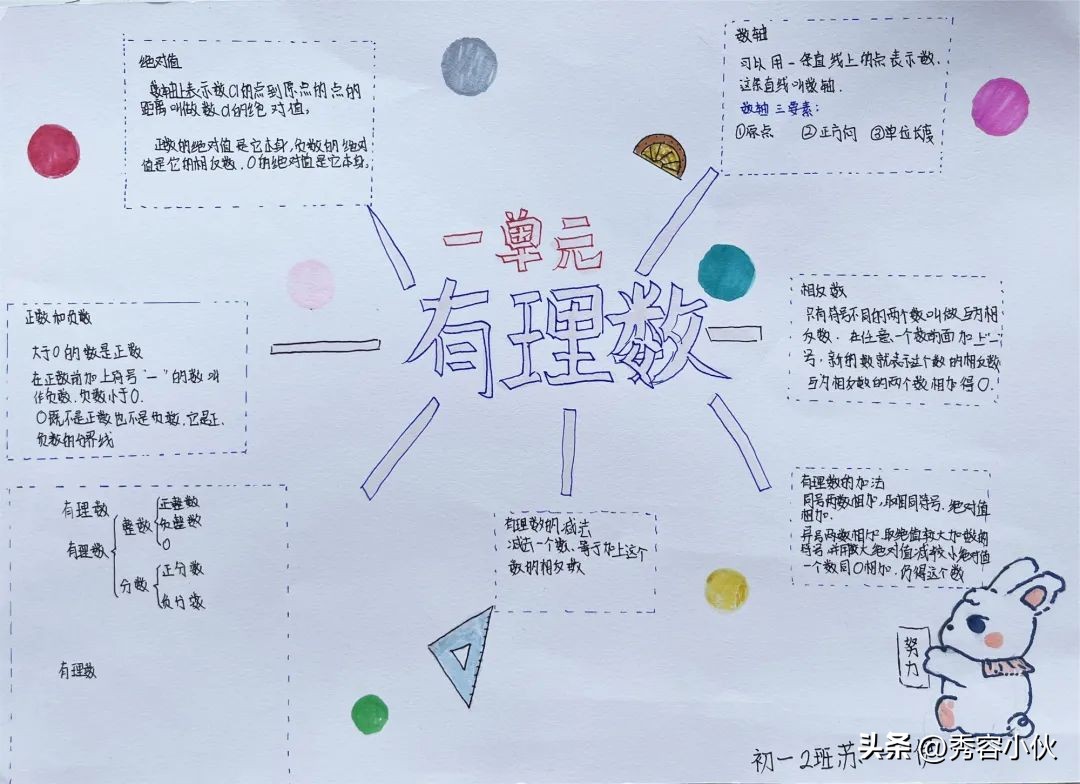 绝对值
数轴上表示数a的点到原点的点的
距离叫做数a的绝对值,
正数的绝对值是它本身,负数的绝对
值是它的相反数,0的绝对值是它本身,
数轴
可以用一条直线上的点表示数,
这条直线叫数轴.
数轴三要素:
①原点 ②正方向 ③单位长度
一单元
有理数
正数和负数
大于0的数是正数
在正数前加上符号"-"的数叫
作负数,负数小于0.
0既不是正数也不是负数,它是正,
负数的分界线
相反数
只有符号不同的两个数叫做互为相
反数.在任意一个数前面加上"-"
号,新的数就表示这个数的相反数
互为相反数的两个数相加得0.
有理数
有理数
整数
正整数
负整数
0
分数
正分数
负分数
有理数
有理数的减法
减去一个数,等于加上这个
数的相反数
有理数的加法
同号两数相加,取相同符号,绝对值
相加.
异号两数相加,取绝对值较大加数的
符号,并用较大绝对值减较小绝对值
一个数同0相加,仍得这个数
努力
初一2班苏
头条@秀容小伙